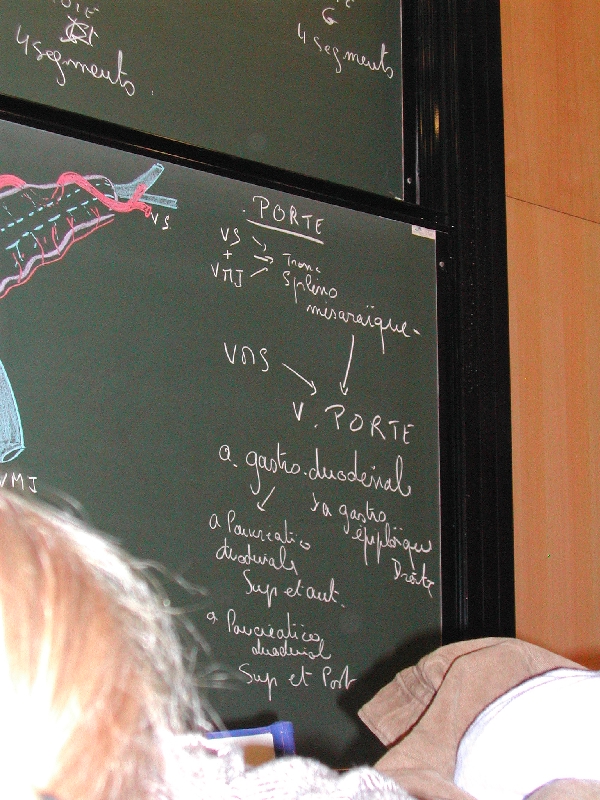 4 segments.
G
4 segments
VS
PORTE
VS
+
Tronc
VMI
Spléno
mésaraïque
VMS
V. PORTE
a. gastro.duodénal
a gastro
épiploïque
Droite
a Pancreatico
duodénale
Sup et ant.
a Pancréatico
duodénal
Sup et Post
VMI